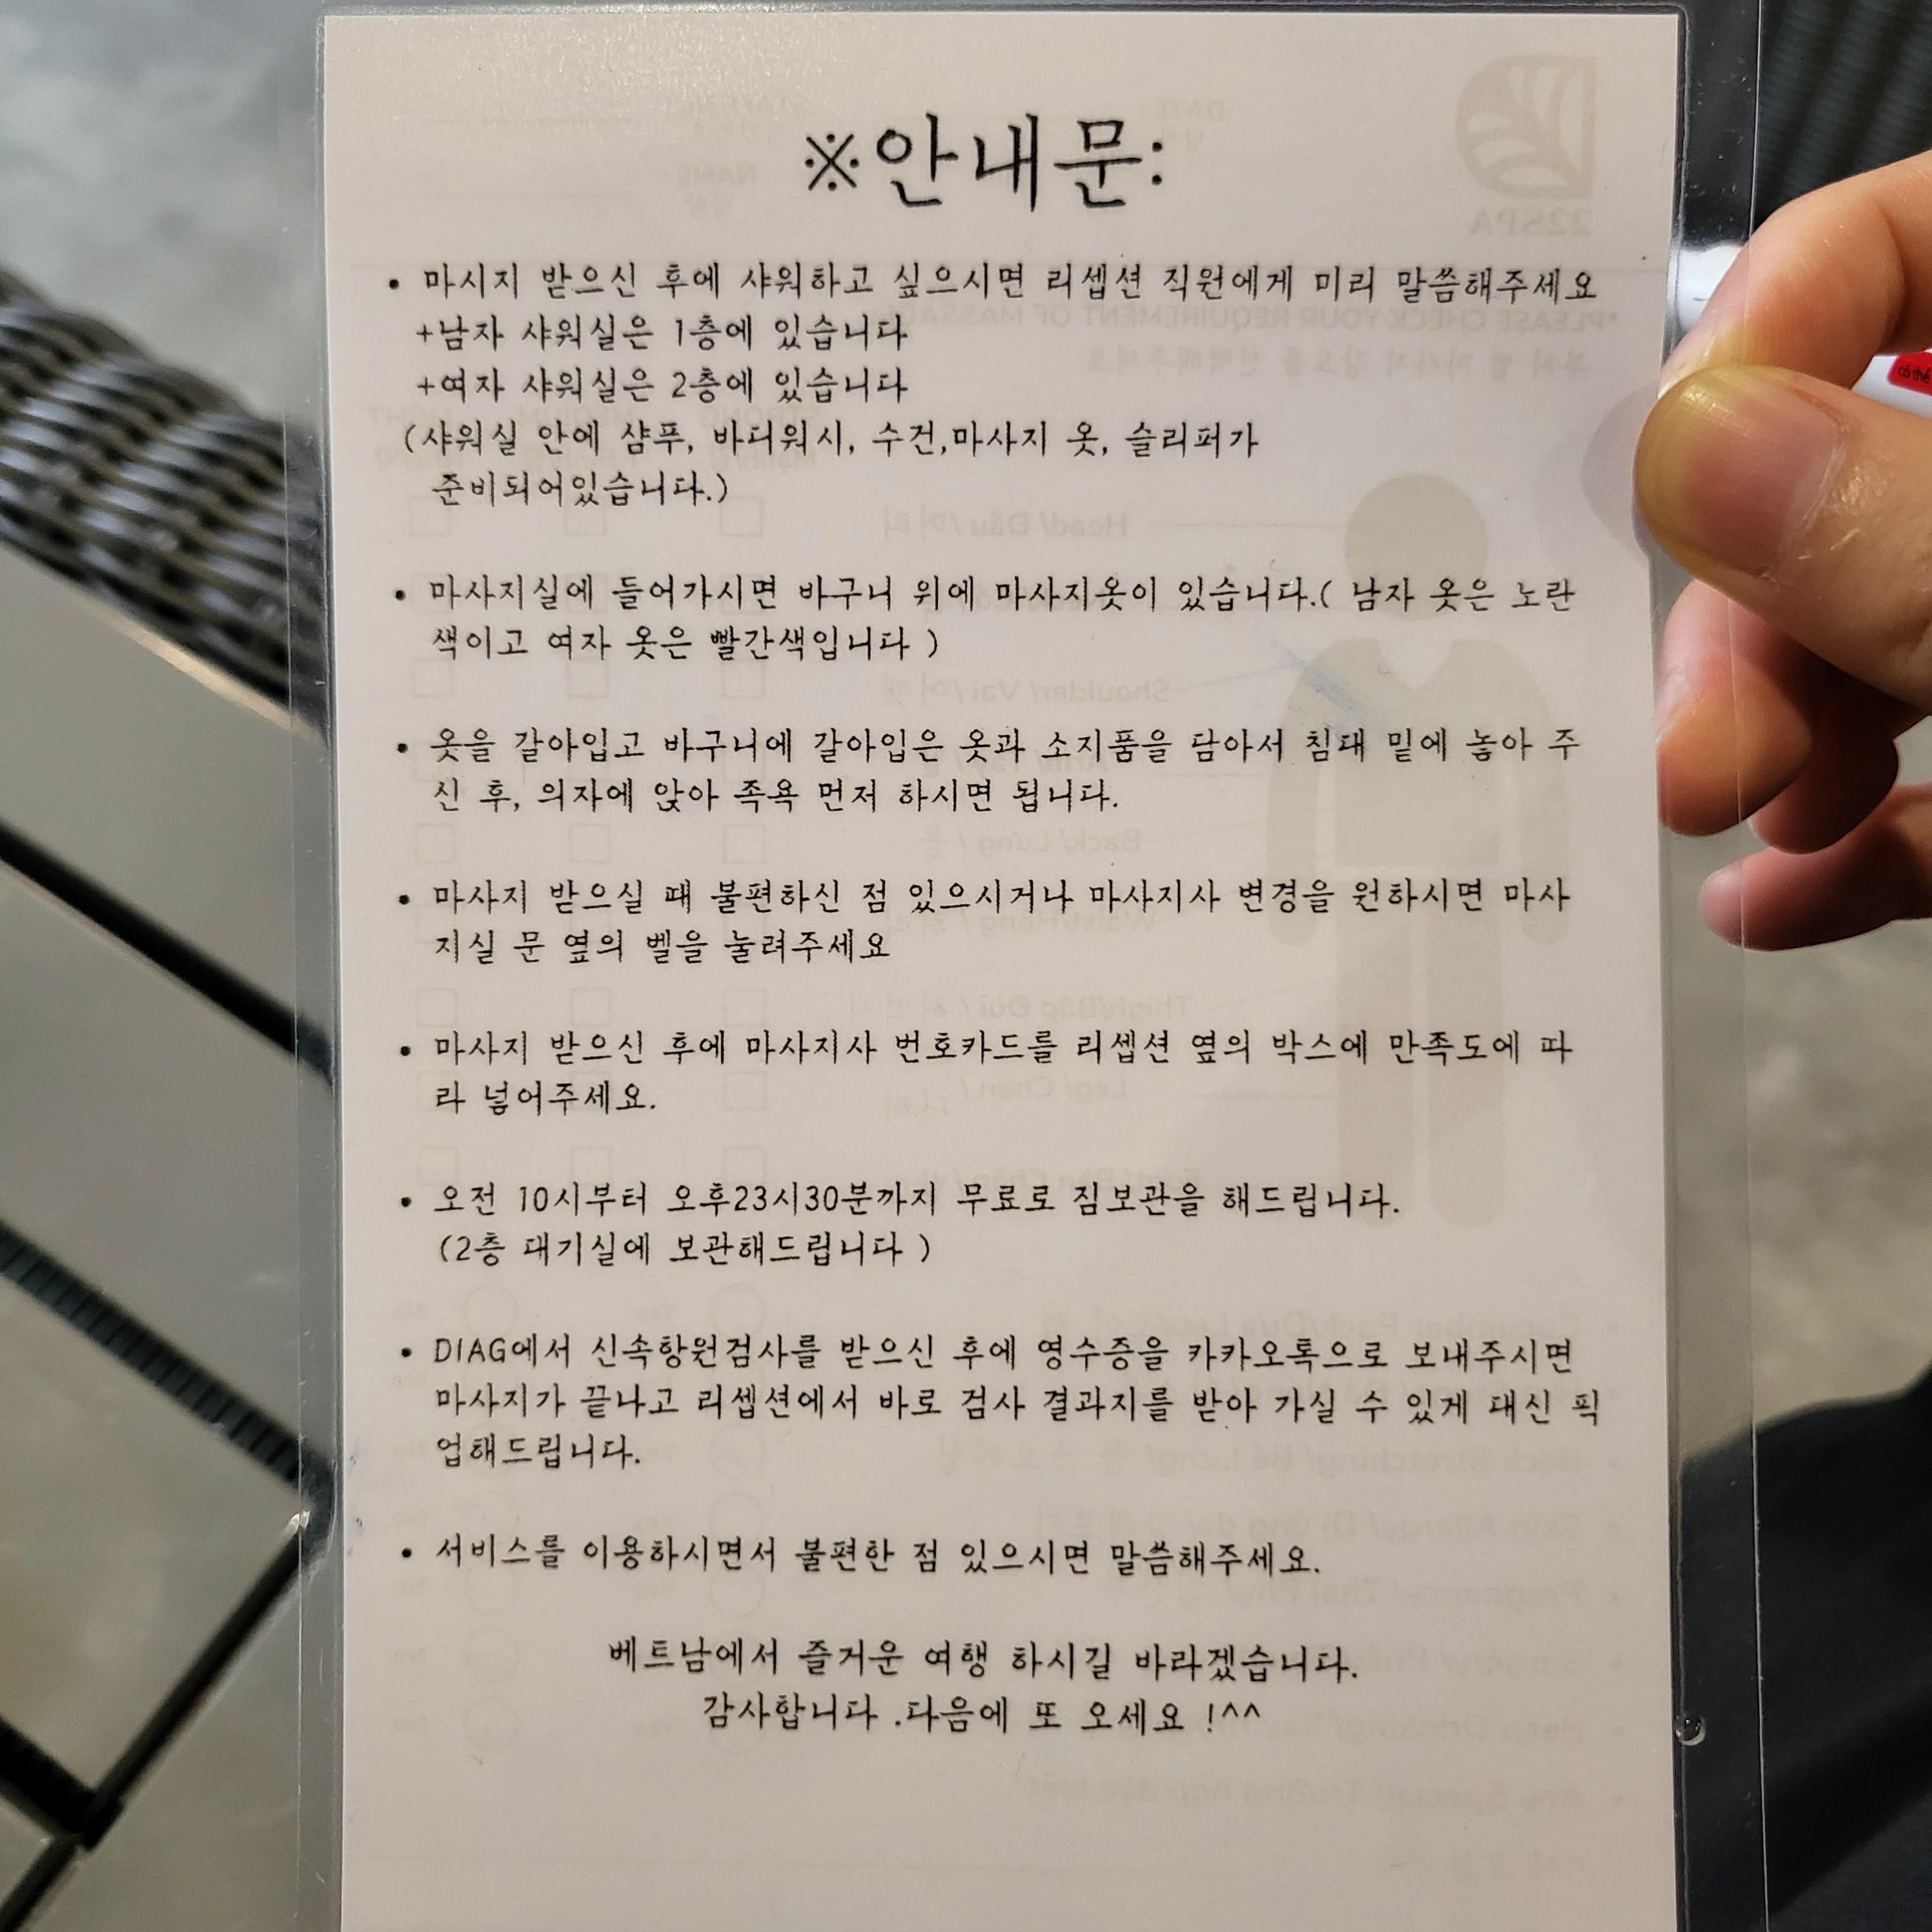 ※안내문:
• 마시지 받으신 후에 샤워하고 싶으시면 리셉션 직원에게 미리 말씀해주세요
+남자 샤워실은 1층에 있습니다
+여자 샤워실은 2층에 있습니다
(샤워실 안에 샴푸, 바디워시, 수건,마사지 옷, 슬리퍼가
준비되어있습니다.)
• 마사지실에 들어가시면 바구니 위에 마사지옷이 있습니다.( 남자 옷은 노란
색이고 여자 옷은 빨간색입니다 )
• 옷을 갈아입고 바구니에 갈아입은 옷과 소지품을 담아서 침대 밑에 놓아 주
신 후, 의자에 앉아 족욕 먼저 하시면 됩니다.
• 마사지 받으실 때 불편하신 점 있으시거나 마사지사 변경을 원하시면 마사
지실 문 옆의 벨을 눌려주세요
• 마사지 받으신 후에 마사지사 번호카드를 리셉션 옆의 박스에 만족도에 따
라 넣어주세요.
• 오전 10시부터 오후23시30분까지 무료로 짐보관을 해드립니다.
(2층 대기실에 보관해드립니다 )
• DIAG에서 신속항원검사를 받으신 후에 영수증을 카카오톡으로 보내주시면
마사지가 끝나고 리셉션에서 바로 검사 결과지를 받아 가실 수 있게 대신 픽
업해드립니다.
• 서비스를 이용하시면서 불편한 점 있으시면 말씀해주세요.
베트남에서 즐거운 여행 하시길 바라겠습니다.
감사합니다 .다음에 또 오세요 !^^